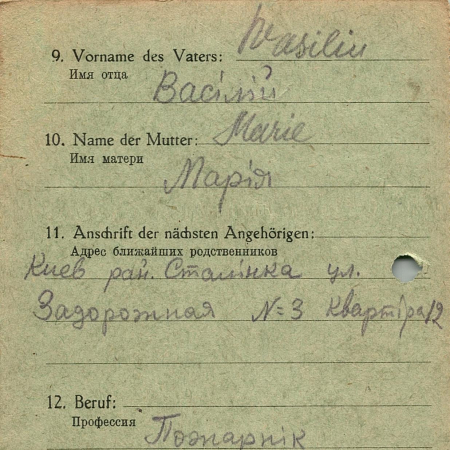 9. Vorname des Vaters: Wasiliu
Имя отца
Васілій
10. Name der Mutter: Marie
Имя матери
Марія
11. Anschrift der nächsten Angehörigen:
Адрес ближайших родственников
Киев рай. Сталінка ул.
Задорожная №3 Квартіра 12
12. Beruf:
Профессия
Пожарнік